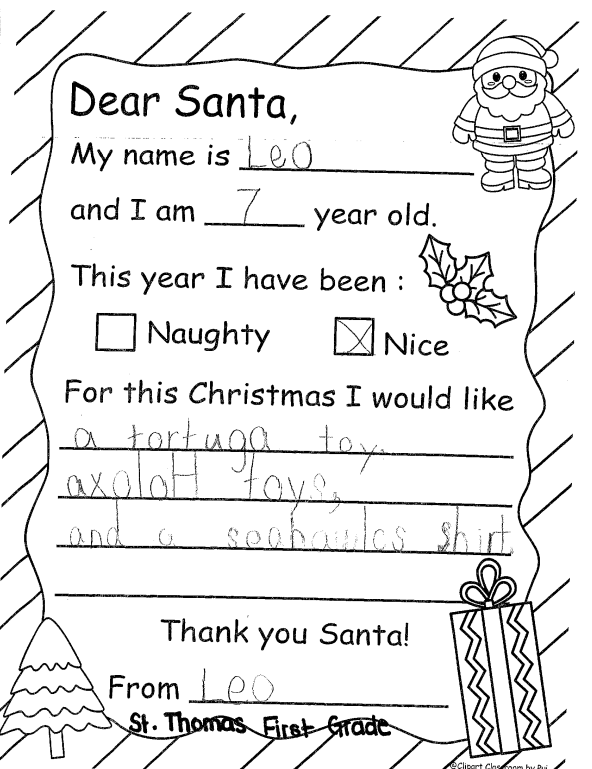 Dear Santa,
My name is Leo
and I am 7 year old.
This year I have been :
Naughty Nice
For this Christmas I would like
a tortuga toy,
axolotl toys,
and a seahawks shirt
Thank you Santa!
From Leo
St. Thomas First Grade
©Clipart Classroom by Pui